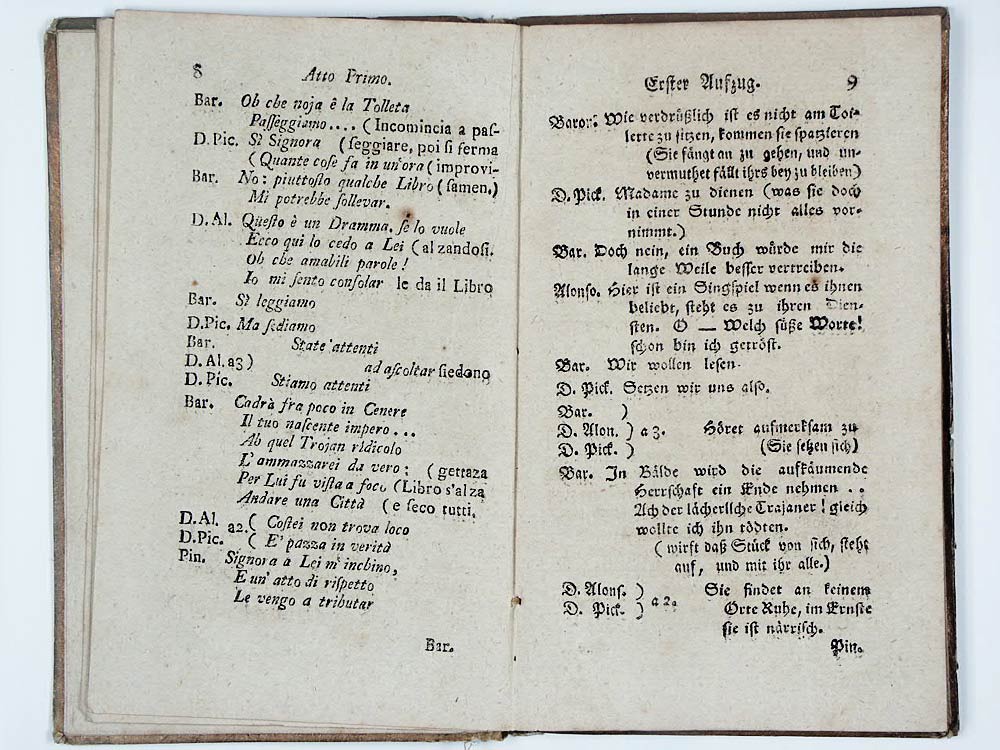 8
Atto Primo.
Bar. Oh che noja è la Tolleta
Passeggiamo.... (Incomincia a pas-
D.Pic. Sì Signora (seggiare, poi si ferma
(Quante cose fa in un'ora (improvi-
Bar. No: piuttosto qualche Libro (samen.)
Mi potrebbe sollevar.
D. Al. Questo è un Dramma, se lo vuole
Ecco qui lo cedo a Lei (al zandosi.
Oh che amabili parole!
Io mi sento consolar le da il Libro
Bar. Sì leggiamo
D.Pic. Ma sediamo
Bar. State attenti
D. Al. a3) ad ascoltar siedono
D. Pic. Stiamo attenti
Bar. Cadrà fra poco in Cenere
Il tuo nascente impero...
Ah quel Trojan ridicolo
L'ammazzarei da vero: (gettaza
Per Lui fu vista a foco (Libro s'alza
Andare una Città (e seco tutti.
D. Al. a2. ( Costei non trova loco
D.Pic. ( E' pazza in verità
Pin. Signora a Lei m'inchino,
E un' atto di rispetto
Le vengo a tributar
Bar.
Erster Aufzug. 9
Baron. Wie verdrüßlich ist es nicht am Toi-
lette zu sitzen, kommen sie spatzieren
(Sie fängt an zu gehen, und un-
vermuthet fällt ihrs bey zu bleiben)
D. Pick. Madame zu dienen (was sie doch
in einer Stunde nicht alles vor-
nimmt.)
Bar. Doch nein, ein Buch würde mir die
lange Weile besser vertreiben.
Alonso. Hier ist ein Singspiel wenn es ihnen
beliebt, steht es zu ihren Dien-
sten. O — Welch süße Worte!
schon bin ich getröst.
Bar. Wir wollen lesen.
D. Pick. Setzen wir uns also.
Bar. )
D. Alon. ) a 3. Höret aufmerksam zu
D. Pick. ) (Sie setzen sich)
Bar. In Bälde wird die aufkäumende
Herrschaft ein Ende nehmen ..
Ach der lächerliche Trajaner! gleich
wollte ich ihn tödten.
(wirft daß Stück von sich, steht
auf, und mit ihr alle.)
D. Alons. ) Sie findet an keinem
D. Pick. ) a 2. Orte Ruhe, im Ernste
sie ist närrisch.
Pin.